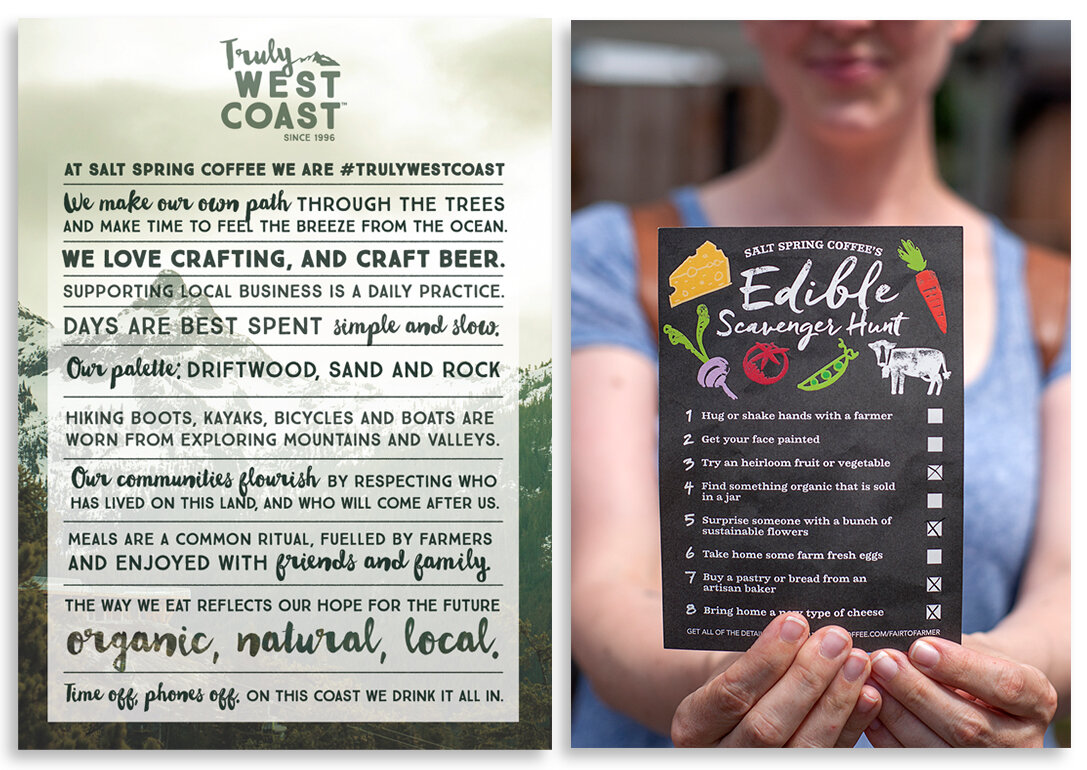 Truly
WEST
COAST™
SINCE 1996
AT SALT SPRING COFFEE WE ARE #TRULYWESTCOAST
We make our own path THROUGH THE TREES
AND MAKE TIME TO FEEL THE BREEZE FROM THE OCEAN.
WE LOVE CRAFTING, AND CRAFT BEER.
SUPPORTING LOCAL BUSINESS IS A DAILY PRACTICE.
DAYS ARE BEST SPENT simple and slow.
Our palette: DRIFTWOOD, SAND AND ROCK
HIKING BOOTS, KAYAKS, BICYCLES AND BOATS ARE
WORN FROM EXPLORING MOUNTAINS AND VALLEYS.
Our communities flourish BY RESPECTING WHO
HAS LIVED ON THIS LAND, AND WHO WILL COME AFTER US.
MEALS ARE A COMMON RITUAL, FUELLED BY FARMERS
AND ENJOYED WITH friends and family.
THE WAY WE EAT REFLECTS OUR HOPE FOR THE FUTURE
organic, natural, local.
Time off, phones off. ON THIS COAST WE DRINK IT ALL IN.
SALT SPRING COFFEE'S
Edible
Scavenger Hunt
1 Hug or shake hands with a farmer
2 Get your face painted
3 Try an heirloom fruit or vegetable
4 Find something organic that is sold
in a jar
5 Surprise someone with a bunch of
sustainable flowers
6 Take home some farm fresh eggs
7 Buy a pastry or bread from an
artisan baker
8 Bring home a new type of cheese
GET ALL OF THE OFFEE.COM/FAIRTOFARMER